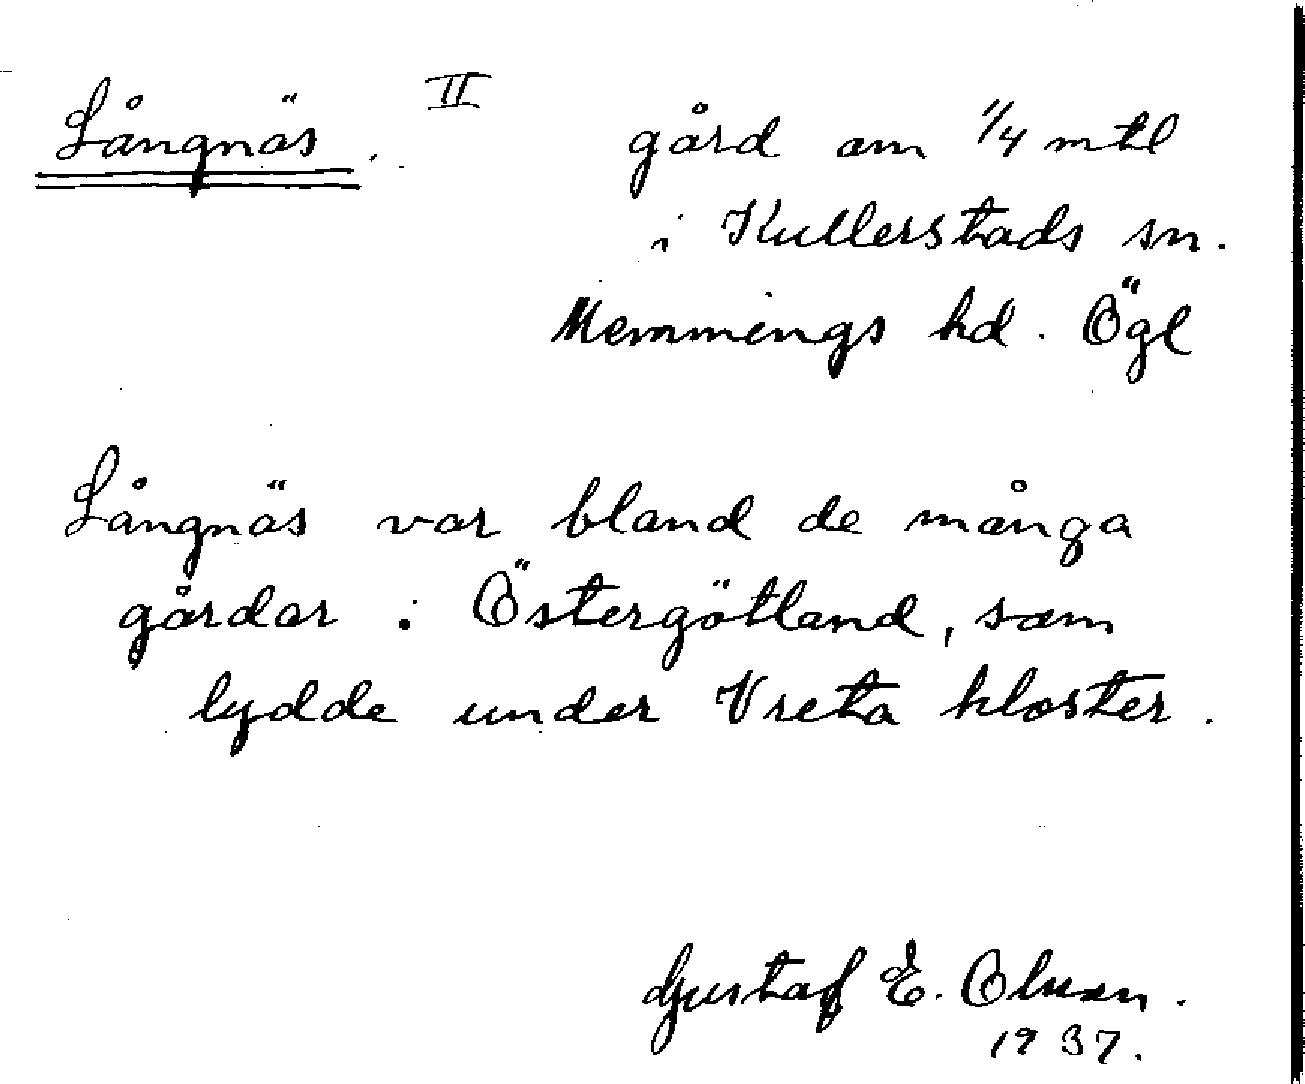 Långnäs. II
gård om 1/4 mtl
i Kullerstads sn.
Memmings hd. Ögl
Långnäs var bland de många
gårdar i Östergötland, som
lydde under Vreta kloster.
Gustaf E. Olsson.
1937.